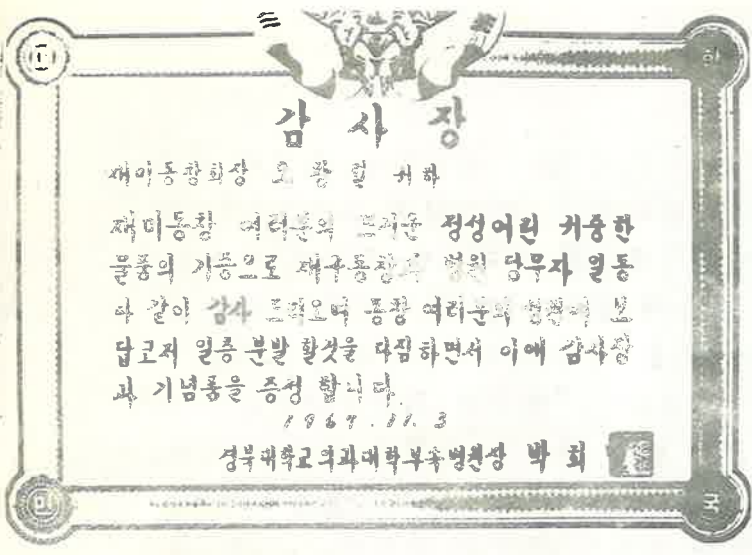 감사장
재미동창회장 오 창 열 귀하
재미동창 여러분의 뜨거운 정성어린 귀중한
물품의 기증으로 재구동창과 병원 당무자 일동
다 같이 감사 드리오며 동창 여러분의 보
답고저 일층 분발 할것을 다짐하면서 이에 감사장
과 기념품을 증정 합니다.
196 . 11. 3
경북대학교의과대학부속병원장 박 희
한
민
국